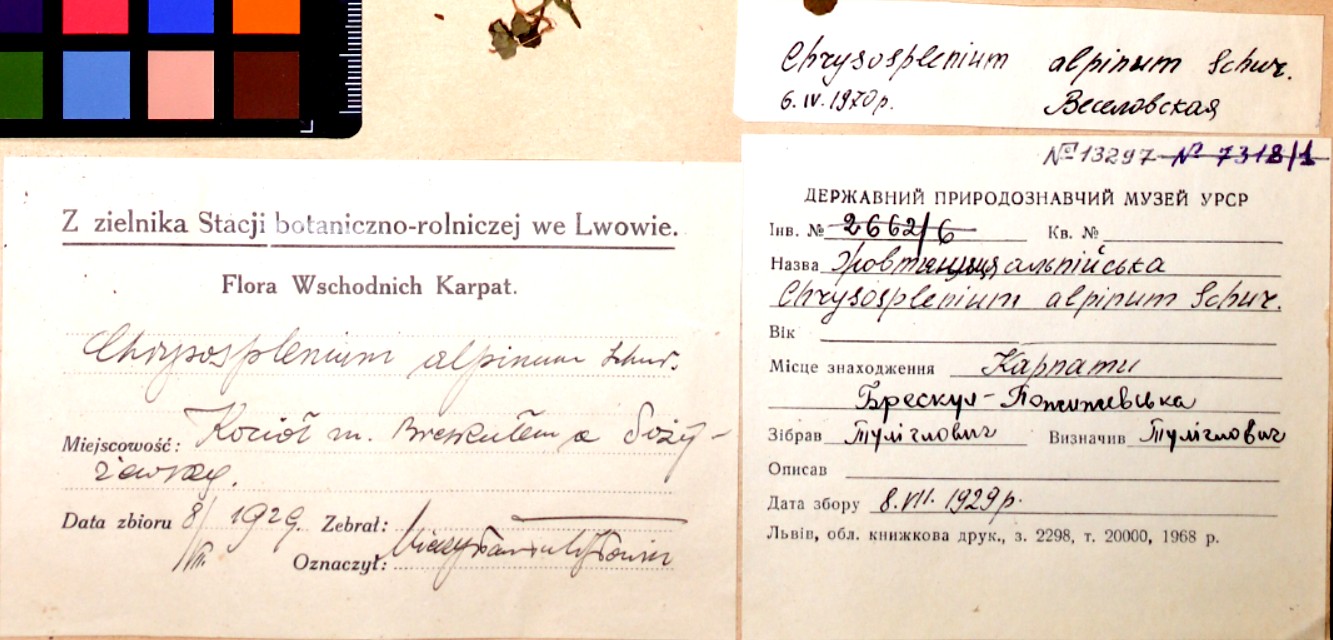 Chrysosplenium alpinum Schur.
6.IV.1970р. Веселовская
Z zielnika Stacji botaniczno-rolniczej we Lwowie.
Flora Wschodnich Karpat.
Chrysosplenium alpinum Schur.
Miejscowość: Kocioł m. Breskułem a Poży-
żewską.
Data zbioru 8/VII. 1929. Zebrał:
Oznaczył:
№ 13297 № 7318/1
ДЕРЖАВНИЙ ПРИРОДОЗНАВЧИЙ МУЗЕЙ УРСР
Інв. № 2662/6 Кв. №
Назва Жовтяниця альпійська
Chrysosplenium alpinum Schur.
Вік
Місце знаходження Карпати
Брескул - Пожижевська
Зібрав Туліглович Визначив Туліглович
Описав
Дата збору 8.VII.1929р.
Львів, обл. книжкова друк., з. 2298, т. 20000, 1968 р.